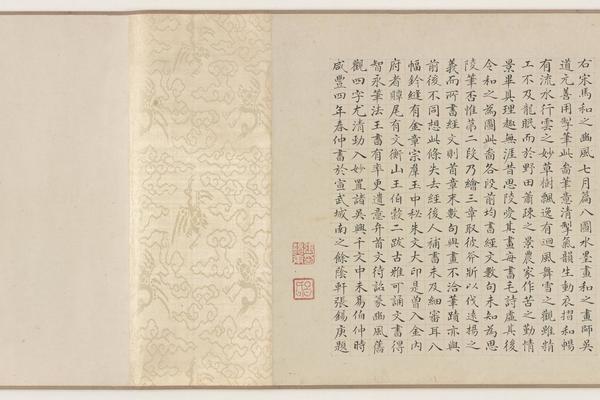 右宋馬和之豳風七月篇八圖水墨畫和之畫師吳
道元善用掣筆此卷筆意清掣氣韻生動衣摺和暢
有流水行雲之妙草樹飄逸有迴風舞雪之觀雖精
工不及龍眠而於野田蕭疎之景農家作苦之勤情
景畢具理趣無涯昔思陵愛其畫每書毛詩虛其後
令和之為圖此卷各段前均書經文數句未知為思
陵筆否惟第二段乃繪三章取彼斧斨以伐遠揚之
義而所書經文則首章末數句與畫不洽筆蹟亦與
前後不同想此條失去經後人補書未及細審耳八
幅鈐縫有金章宗羣玉中秘朱文大印是曾入金內
府者贉尾有文衡山王伯穀二跋古雅可誦文書得
智永筆法王書有率更遺意弁首文待詔篆豳風舊
觀四字尤清勁入妙置諸吳興千文中未易伯仲時
咸豐四年春仲書於宣武城南之餘蔭軒張錫庚題